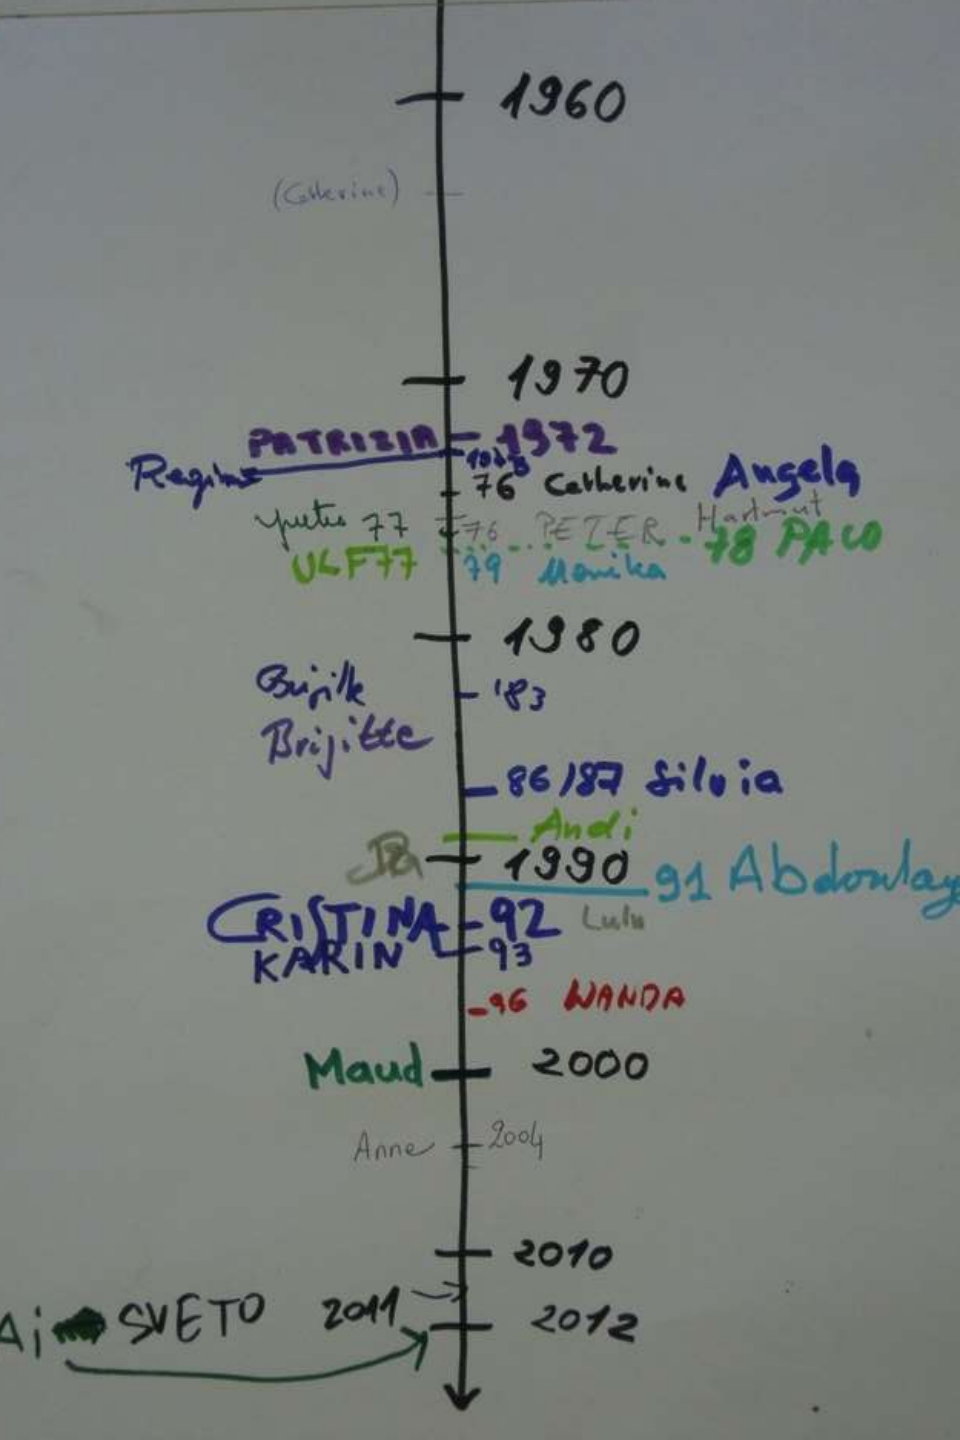 1960
(Catherine)
1970
PATRIZIA 1972
Regine
76 Catherine Angela
77 76 PETER Hartmut
78 PACO
ULF 77 79 Monika
1980
'83
Brijitte
86/87 Silvia
Andi
1990
91 Abdoulay
CRISTINA 92 Lulu
KARIN 93
96 WANDA
Maud 2000
Anne 2004
2010
Ai SVETO 2011
2012